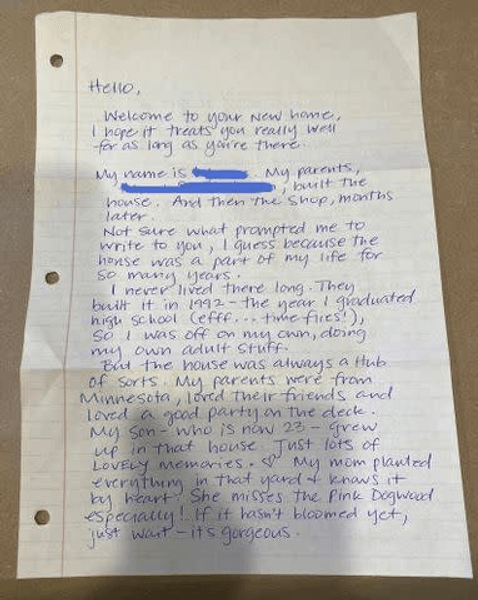 Hello,
Welcome to your new home,
I hope it treats you really well
for as long as you're there.
My name is . My parents,
, built the
house. And then the shop, months
later.
Not sure what prompted me to
write to you, I guess because the
house was a part of my life for
so many years.
I never lived there long. They
built it in 1992 - the year I graduated
high school (efff... time flies!),
so I was off on my own, doing
my own adult stuff.
But the house was always a Hub
of sorts. My parents were from
Minnesota, loved their friends and
loved a good party on the deck.
My son - who is now 23 - grew
up in that house. Just lots of
LOVELY memories. ♡ My mom planted
everything in that yard & knows it
by heart. She misses the Pink Dogwood
especially! If it hasn't bloomed yet,
just wait - it's gorgeous.